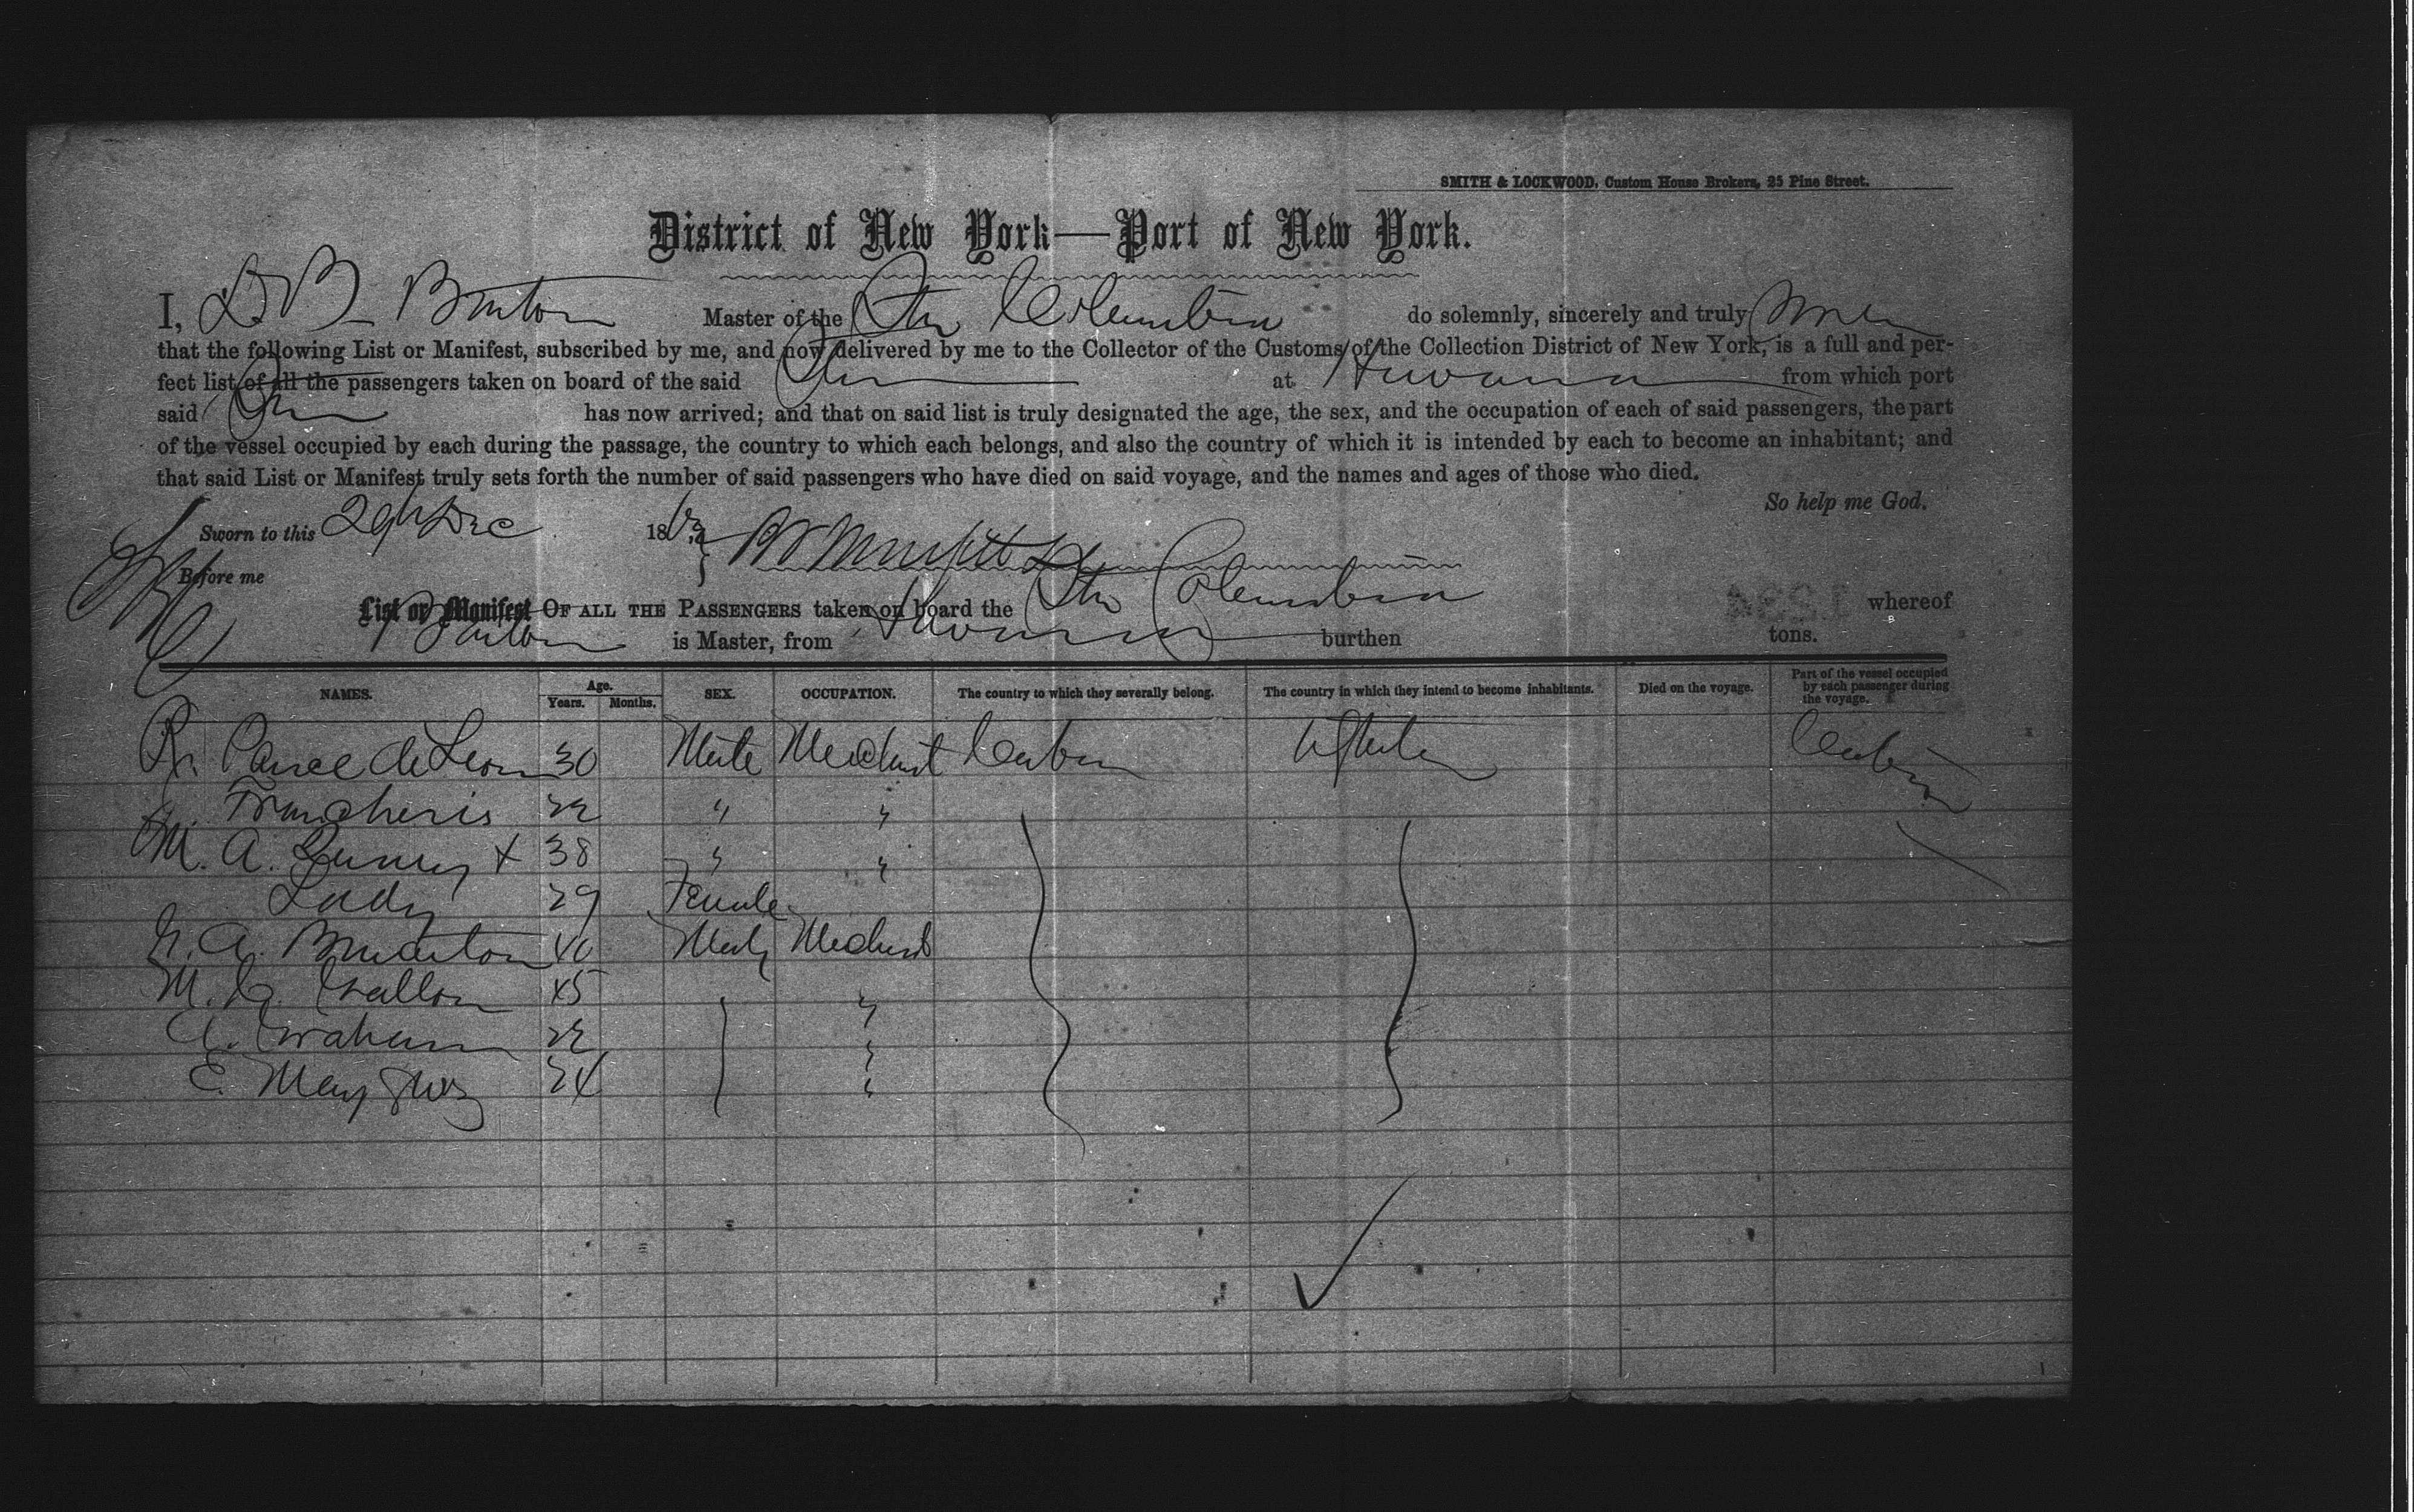 SMITH & LOCKWOOD, Custom House Brokers, 25 Pine Street.
District of New York—Port of New York.
I, D B Barton Master of the Str Columbia do solemnly, sincerely and truly swear
that the following List or Manifest, subscribed by me, and now delivered by me to the Collector of the Customs of the Collection District of New York, is a full and per-
fect list of all the passengers taken on board of the said Str at Havana from which port
said Str has now arrived; and that on said list is truly designated the age, the sex, and the occupation of each of said passengers, the part
of the vessel occupied by each during the passage, the country to which each belongs, and also the country of which it is intended by each to become an inhabitant; and
that said List or Manifest truly sets forth the number of said passengers who have died on said voyage, and the names and ages of those who died.
So help me God.
Sworn to this 29th Dec 18
Before me
List or Manifest OF ALL THE PASSENGERS taken on board the Str Columbia whereof
Barton is Master, from Havana burthen tons.
NAMES. Age. Years. Months. SEX. OCCUPATION. The country to which they severally belong. The country in which they intend to become inhabitants. Died on the voyage. Part of the vessel occupied by each passenger during the voyage.
R. Ponce de Leon 30 Male Merchant Cuba U States Cabin
22 " "
M. A. + 38 " "
Lady 29 Female
A. 40 Male Merchant
M. 45 "
A. Graham 22 "
E. May 24 "